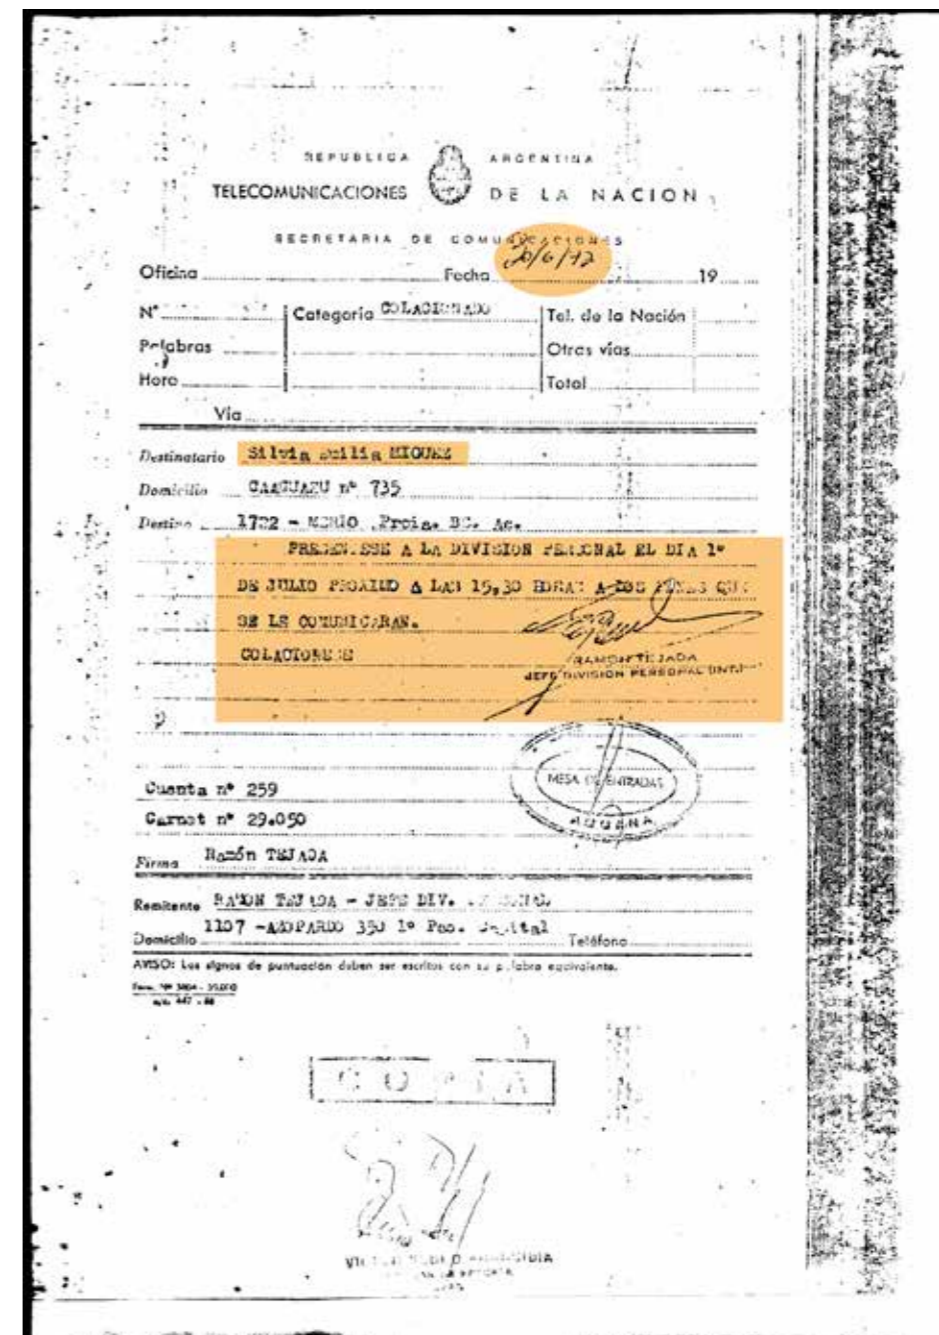 REPUBLICA ARGENTINA
TELECOMUNICACIONES DE LA NACION
SECRETARIA DE COMUNICACIONES
Oficina Fecha 19
Nº Categoría COLACIONADO Tel. de la Nación
Palabras Otras vías
Hora Total
Vía
Destinatario Silvia MIGUEZ
Domicilio CAAGUAZU nº 735
Destino 1722 - MERLO Prcia. BS. As.
PRESENTESE A LA DIVISION PERSONAL EL DIA 1º
DE JULIO PROXIMO A LAS 15,30 HORAS A LOS FINES QUE
SE LE COMUNICARAN.
COLACIONESE
RAMON TEJADA
JEFE DIVISION PERSONAL (INT.)
MESA DE ENTRADAS
ADUANA
Cuenta nº 259
Carnet nº 29.050
Firma Ramón TEJADA
Remitente RAMON TEJADA - JEFE DIV. PERSONAL
Domicilio 1107 -AZOPARDO 350 1º Pso. Capital Teléfono
AVISO: Los signos de puntuación deben ser escritos con su palabra equivalente.
COPIA